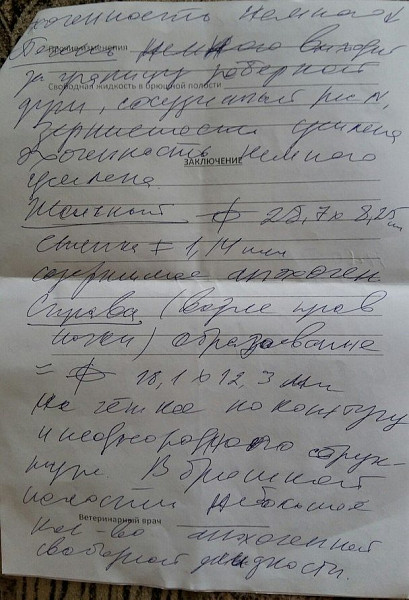 эхогенность немного ↓
Печень немного выходит
за границу реберной
Свободная жидкость в брюшной полости
дуги, сосудистый рис. N,
зернистость усилена
эхогенность немного
ЗАКЛЮЧЕНИЕ
усилена.
Желчный ф 28,7 х 8,25
стенка = 1,14 мм
содержимое анэхоген
Справа (возле прав
почки) образование
= ф 18,1 х 12,3 мм
не четкое по контуру
и неоднородного струк-
туре. В брюшной
полости небольшое
Ветеринарный врач
кол-во анэхогенной
свободной жидкости.